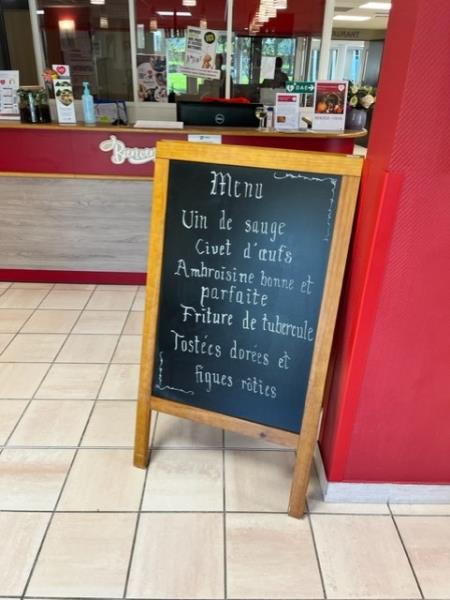 Menu
Vin de sauge
Civet d'œufs
Ambroisine bonne et
parfaite
Friture de tubercule
Tostées dorées et
figues rôties
DAE
DELL